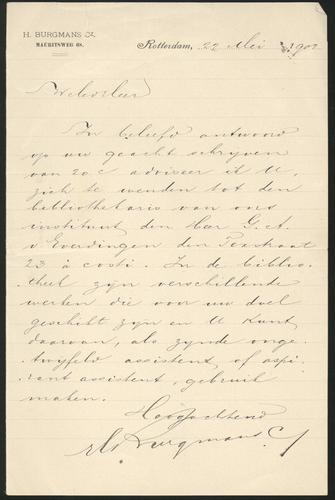 H. BURGMANS Cz.
MAURITSWEG 68.
Rotterdam, 22 Mei 190
WelEdHeer
In beleefd antwoord
op uw geacht schrijven
van 20c adviseer ik U
zich te wenden tot den
bibliothekaris van ons
instituut den Heer G. A.
v Everdingen den Texstraat
23 à costi. In de biblio-
theek zijn verschillende
werken die voor uw doel
geschikt zijn en U kunt
daarvan, als zijnde onge-
twijfeld assistent of aspi-
rant assistent, gebruik
maken.
Hoogachtend
Burgmans Cz